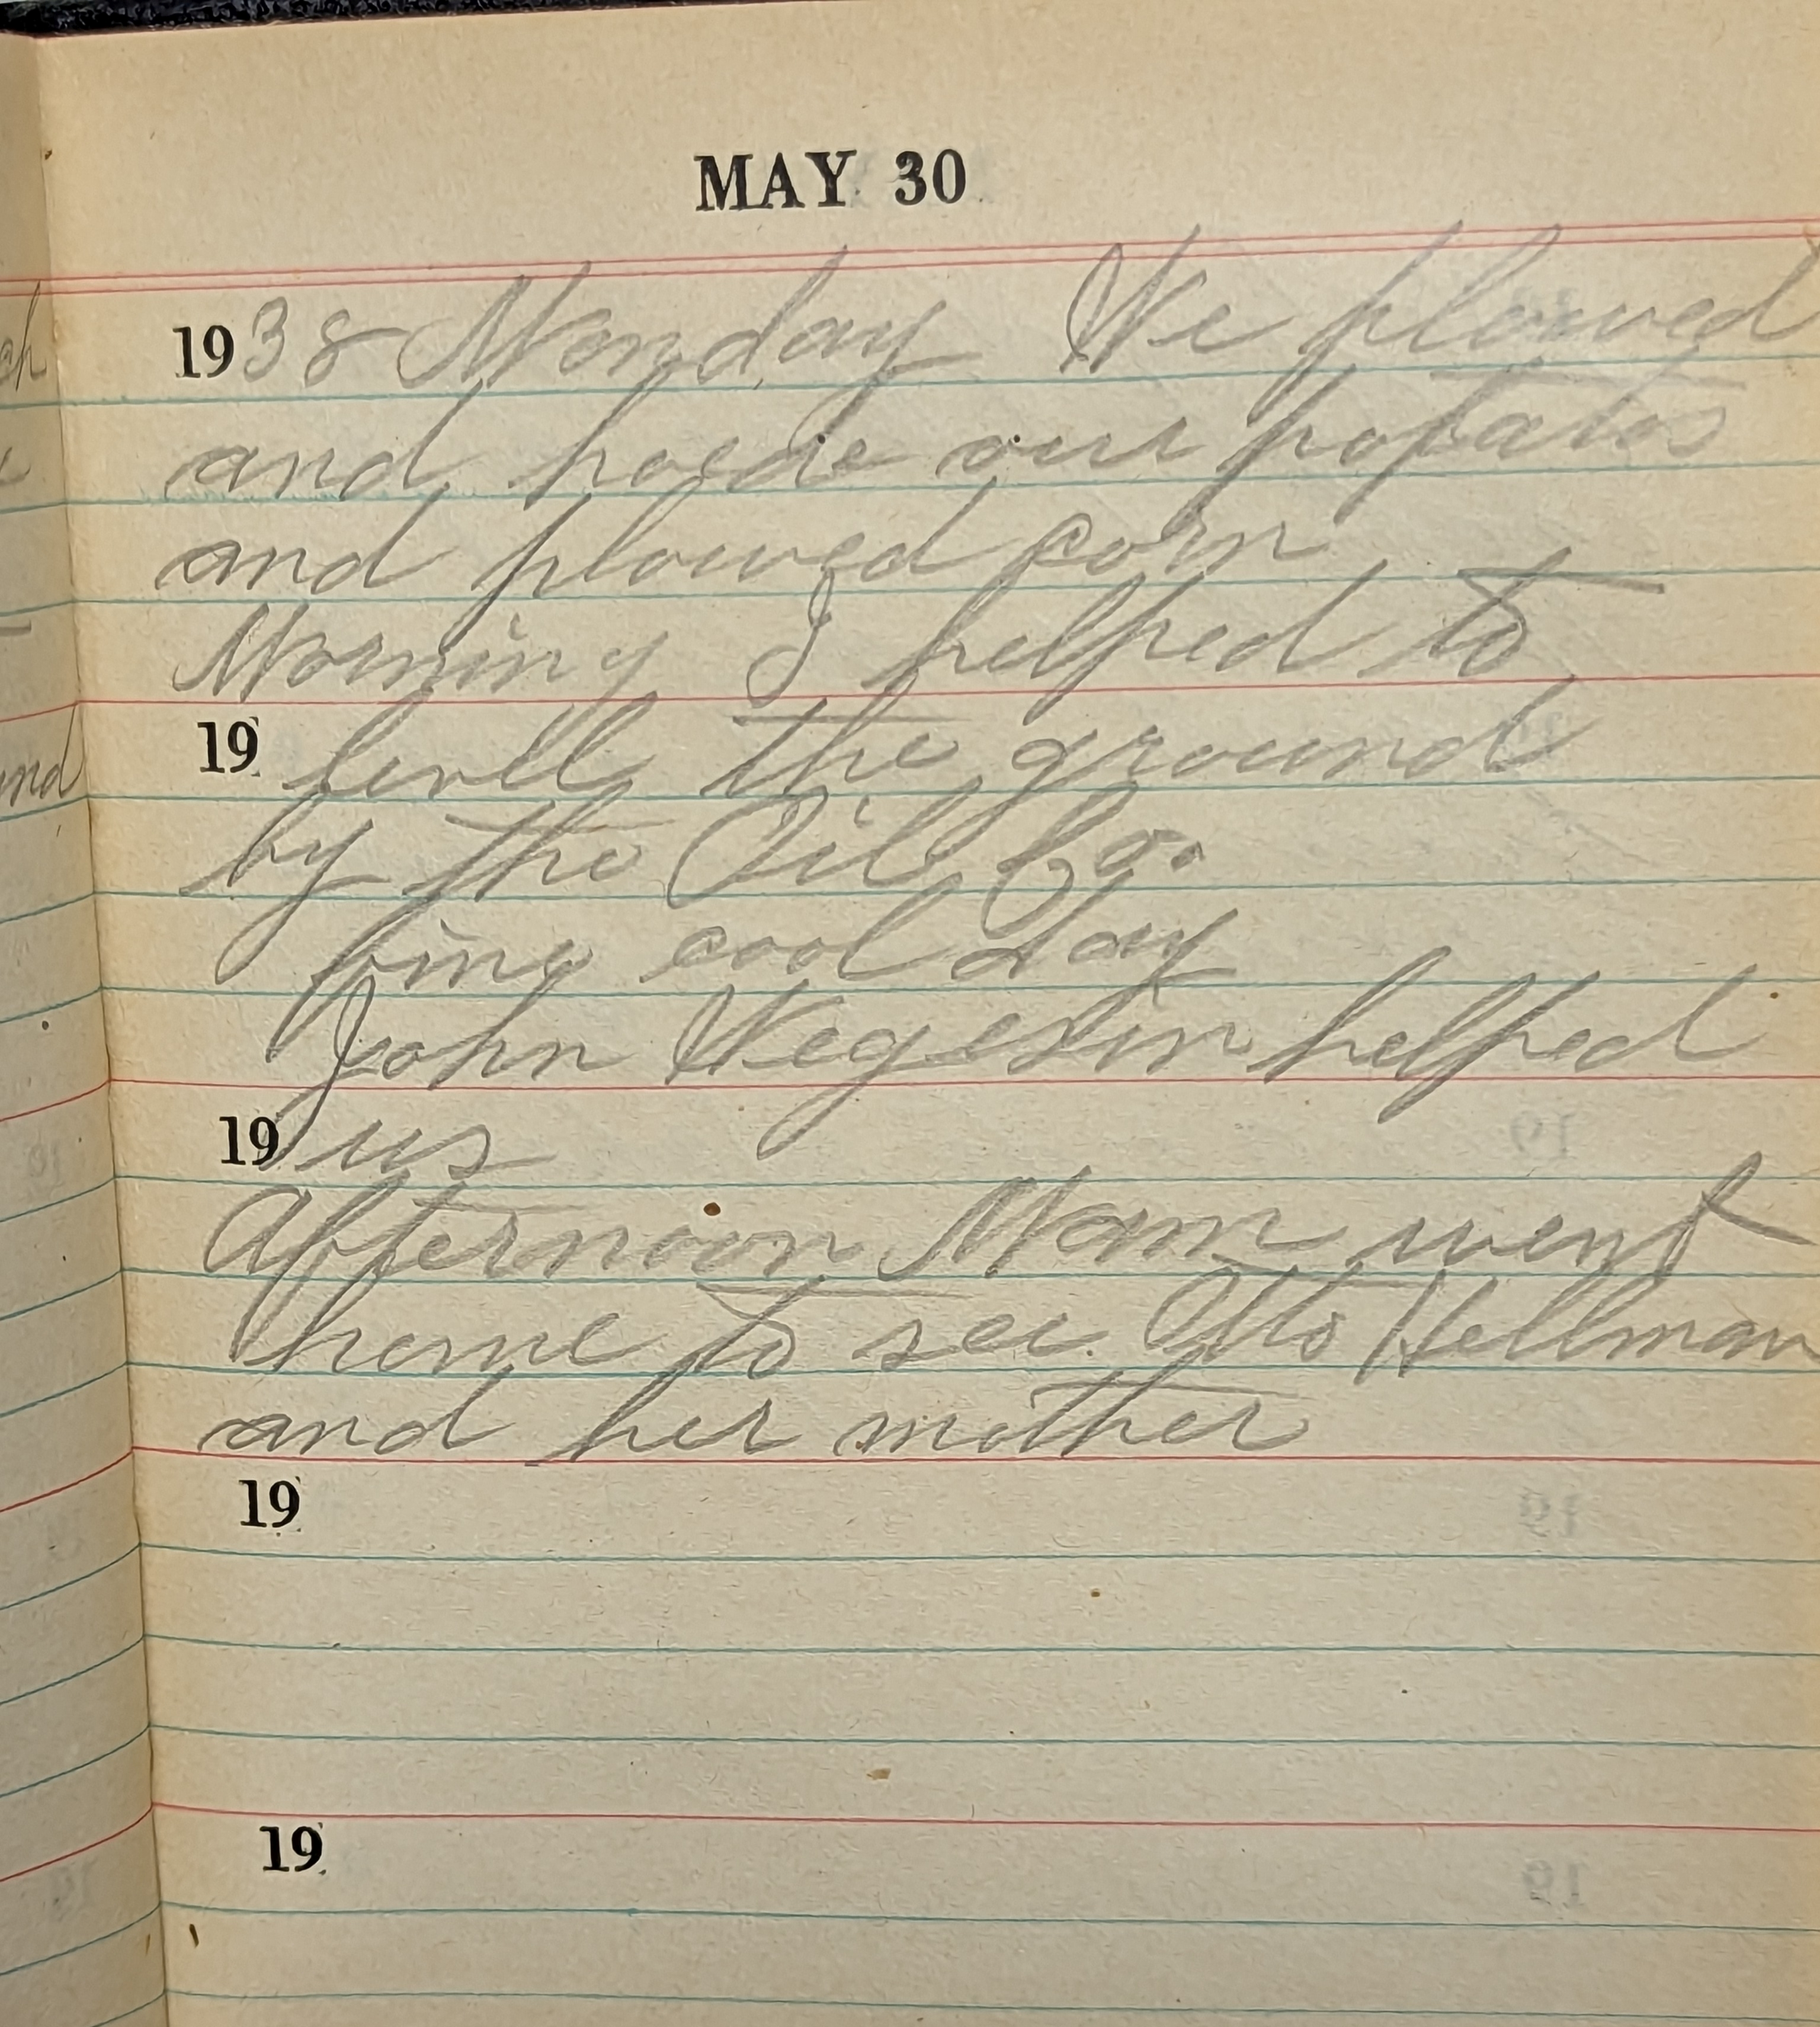 MAY 30
1938 Monday We plowed
and hoede our potatos
and plowed corn
Morning I helped to
19 levell the ground
by the Oil Co.
fine cool day
John Wegesin helped
19 us
Afternoon Mom went
home to see Otto Hellman
and her mother
19
19